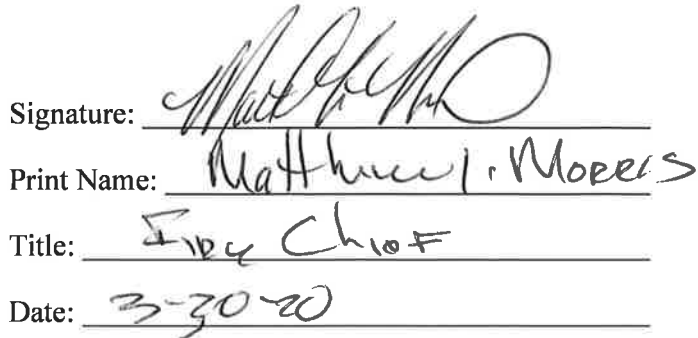 Signature:
Print Name: Matthew J. Morris
Title: Fire Chief
Date: 3-30-20